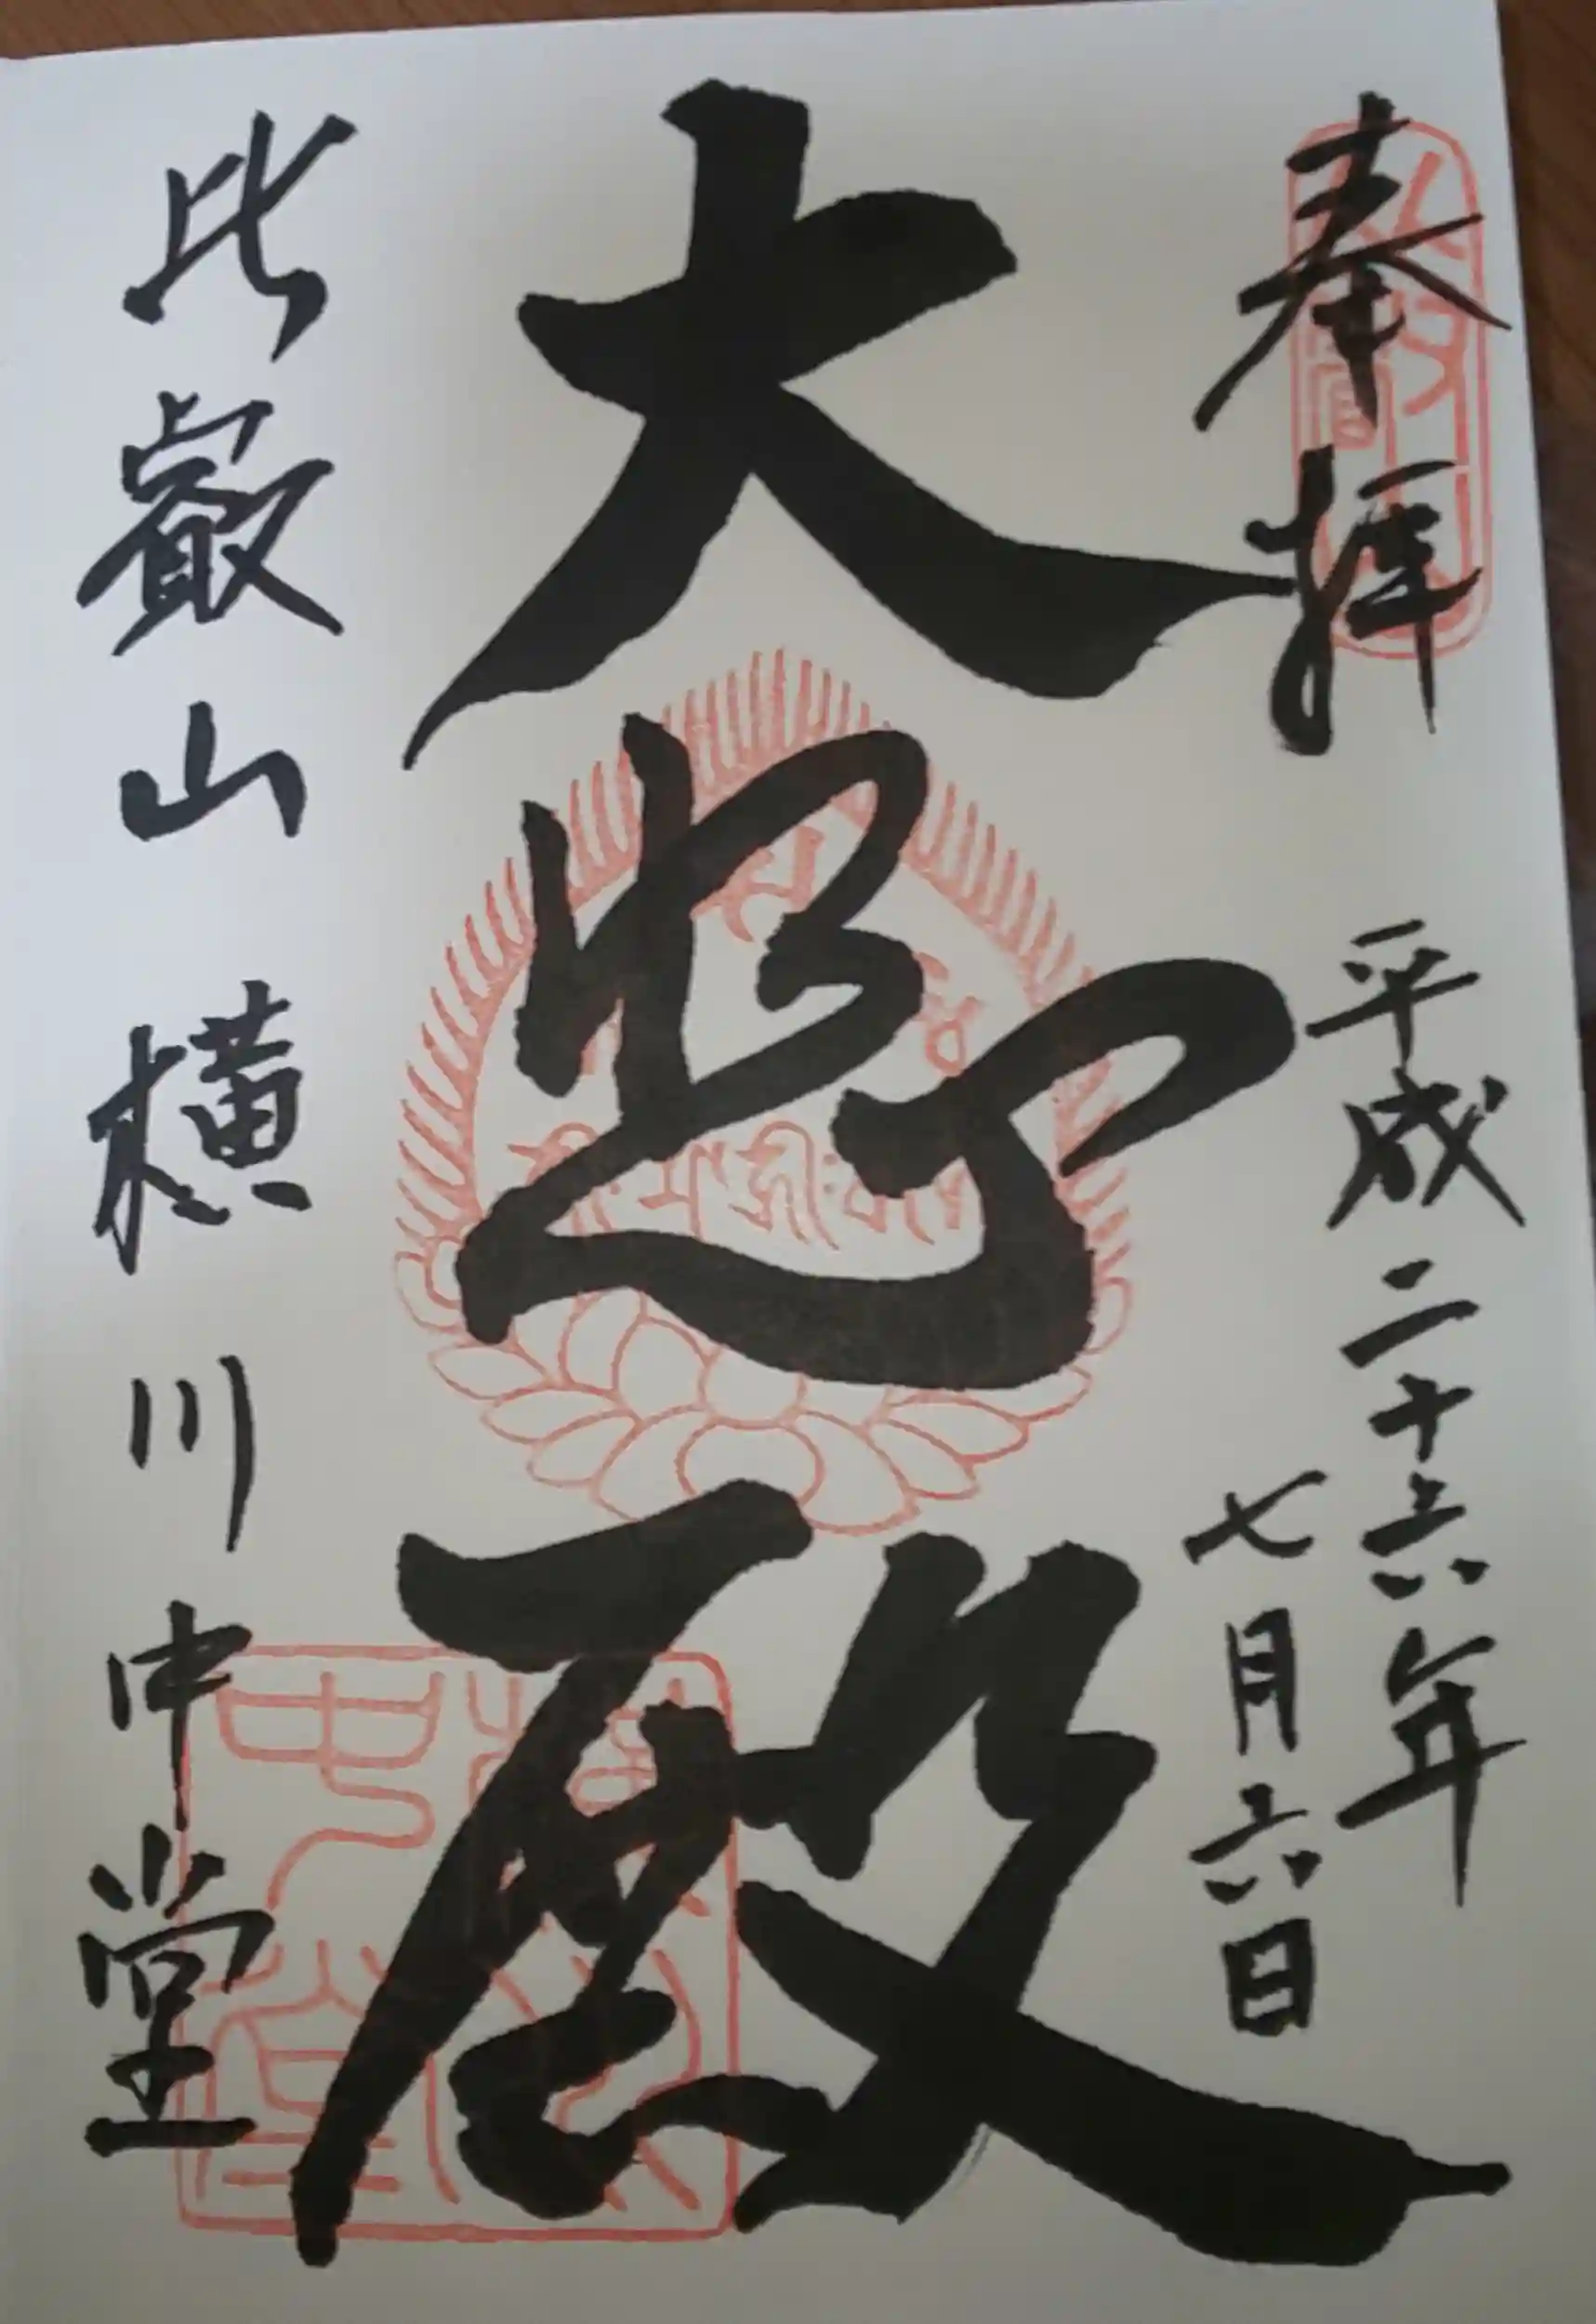 奉拝
平成二十六年
七月六日
大悲殿
比叡山 横川中堂
横川
中堂